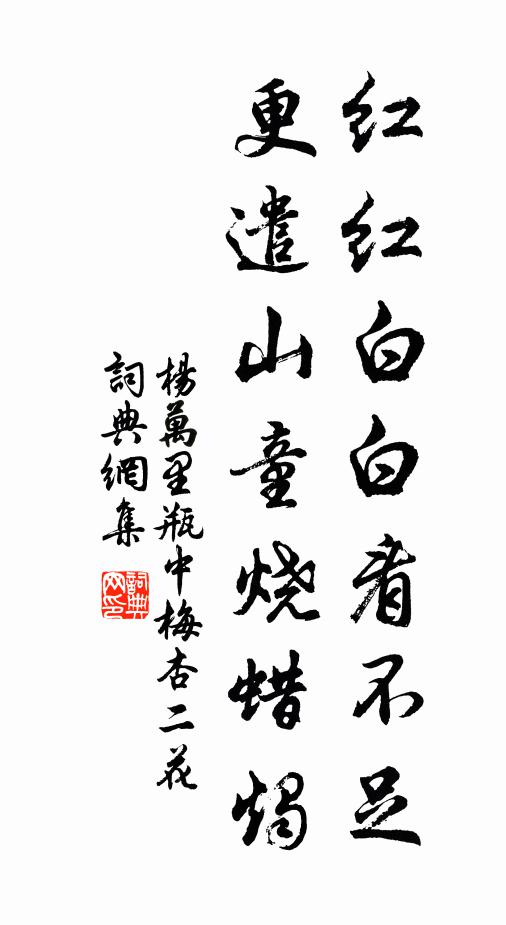 红红白白看不足
更遣山童烧蜡烛
楊萬里瓶中梅杏二花
詞典網集
詞典
网印